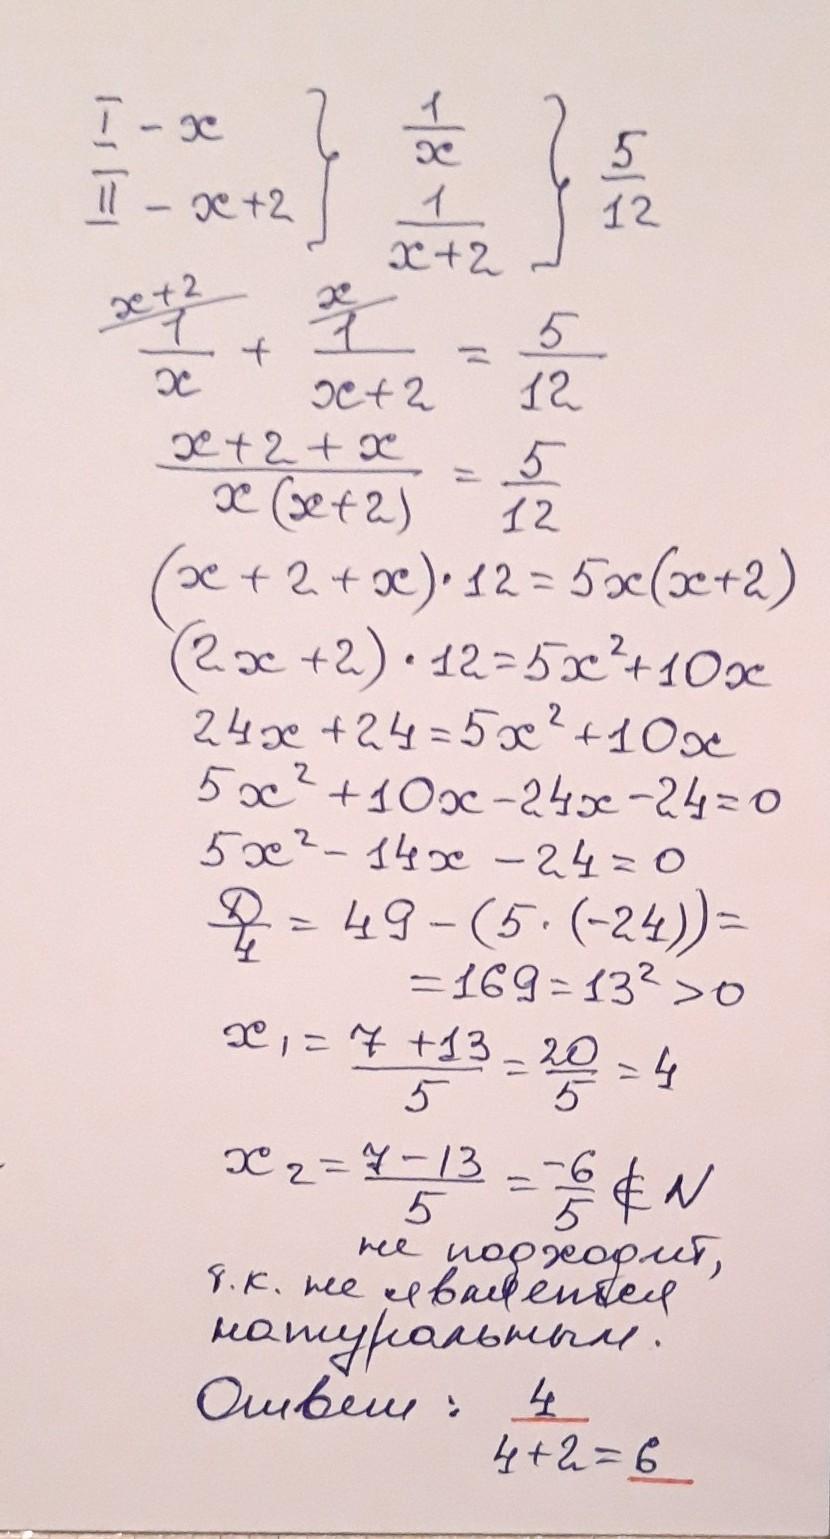 I - x } 1/x } 5/12
II - x+2 } 1/(x+2) }
x+2 x
1/x + 1/(x+2) = 5/12
(x+2+x)/(x(x+2)) = 5/12
(x+2+x)·12=5x(x+2)
(2x+2)·12=5x²+10x
24x+24=5x²+10x
5x²+10x-24x-24=0
5x²-14x-24=0
D/4 = 49-(5·(-24))=
=169=13²>0
x₁= (7+13)/5 = 20/5 = 4
x₂= (7-13)/5 = -6/5 ∉ N
не подходит,
т.к. не является
натуральным.
Ответ: 4
4+2=6